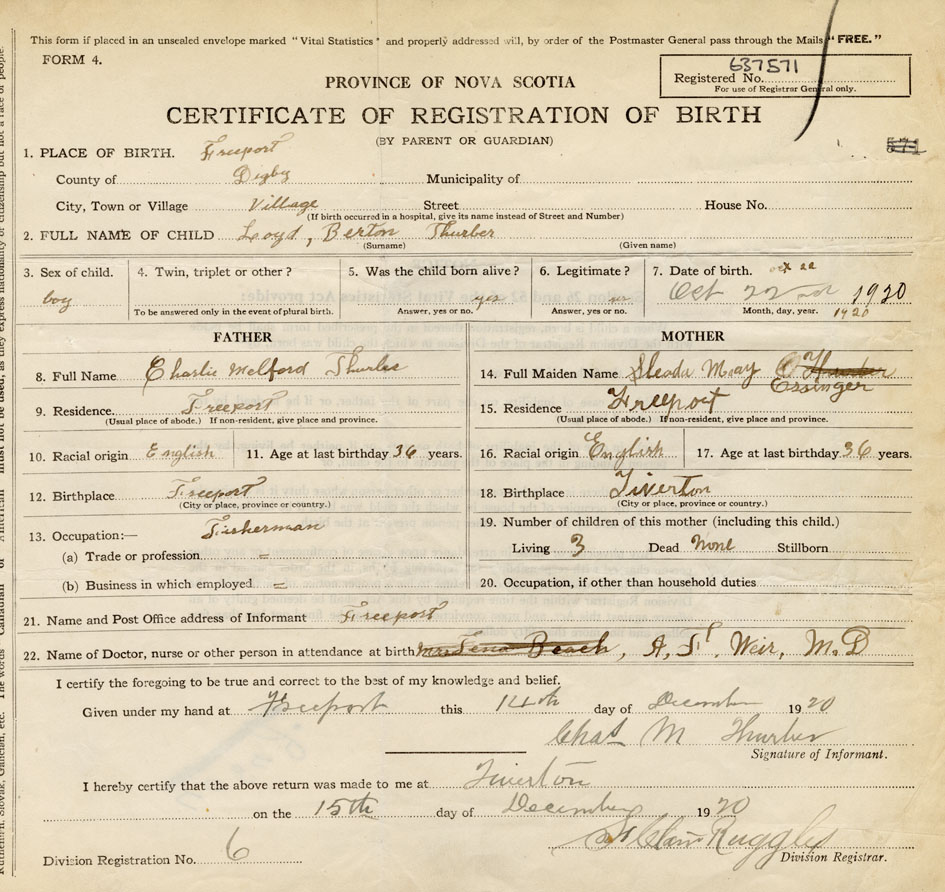 This form if placed in an unsealed envelope marked "Vital Statistics" and properly addressed will, by order of the Postmaster General pass through the Mails "FREE."
FORM 4.
637571
Registered No.
For use of Registrar General only.
PROVINCE OF NOVA SCOTIA
CERTIFICATE OF REGISTRATION OF BIRTH
(BY PARENT OR GUARDIAN)
571
1. PLACE OF BIRTH. Freeport
County of Digby Municipality of
City, Town or Village Village Street House No.
(If birth occurred in a hospital, give its name instead of Street and Number)
2. FULL NAME OF CHILD Loyd, Berton Thurber
(Surname) (Given name)
3. Sex of child. 4. Twin, triplet or other? 5. Was the child born alive? 6. Legitimate? 7. Date of birth. oct 22
boy yes Oct 22nd 1920
To be answered only in the event of plural birth. Answer, yes or no. Answer, yes or no. Month, day, year. 1920
FATHER MOTHER
8. Full Name Charlie Melford Thurber 14. Full Maiden Name May
Ossinger
9. Residence. Freeport 15. Residence Freeport
(Usual place of abode.) If non-resident, give place and province. (Usual place of abode.) If non-resident, give place and province.
10. Racial origin English 11. Age at last birthday 36 years. 16. Racial origin English 17. Age at last birthday 36 years.
12. Birthplace Freeport 18. Birthplace Tiverton
(City or place, province or country.) (City or place, province or country.)
13. Occupation:— Fisherman 19. Number of children of this mother (including this child.)
(a) Trade or profession = Living 3 Dead None Stillborn
(b) Business in which employed = 20. Occupation, if other than household duties
21. Name and Post Office address of Informant Freeport
22. Name of Doctor, nurse or other person in attendance at birth Mrs Lena Beach, A. F. Weir, M.D
I certify the foregoing to be true and correct to the best of my knowledge and belief.
Given under my hand at Freeport this 14th day of December 1920
Chas M Thurber
Signature of Informant.
I hereby certify that the above return was made to me at Tiverton
on the 15th day of December 1920
Ruggles
Division Registration No. 6 Division Registrar.